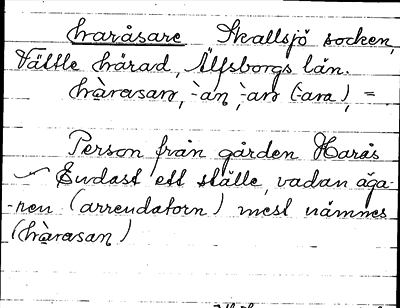 haråsare Skallsjö socken,
Vättle härad, Älfsborgs län.
hàrasar, -̀an, -̀ar (-̀ara), =
Person från gården Harås
Endast ett ställe, vadan äga-
-ren (arrendatorn) mest nämnes
(hàrasan)